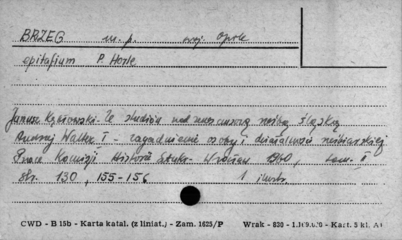 BRZEG m. p. woj. Opole
epitafium P. Horle
Janusz Kębłowski. Ze studiów nad nowożytną rzeźbą śląską
Andrzej Walter I - zagadnienie osoby i działalności rzeźbiarskiej
Prace Komisji Historii Sztuki. Wrocław 1960, tom. II
str. 130, 155-156 1 ilustr.
CWD - B 15b - Karta katal. (z liniat.) - Zam. 1625/P Wrak - 838 - Kart. 5 kl. A1